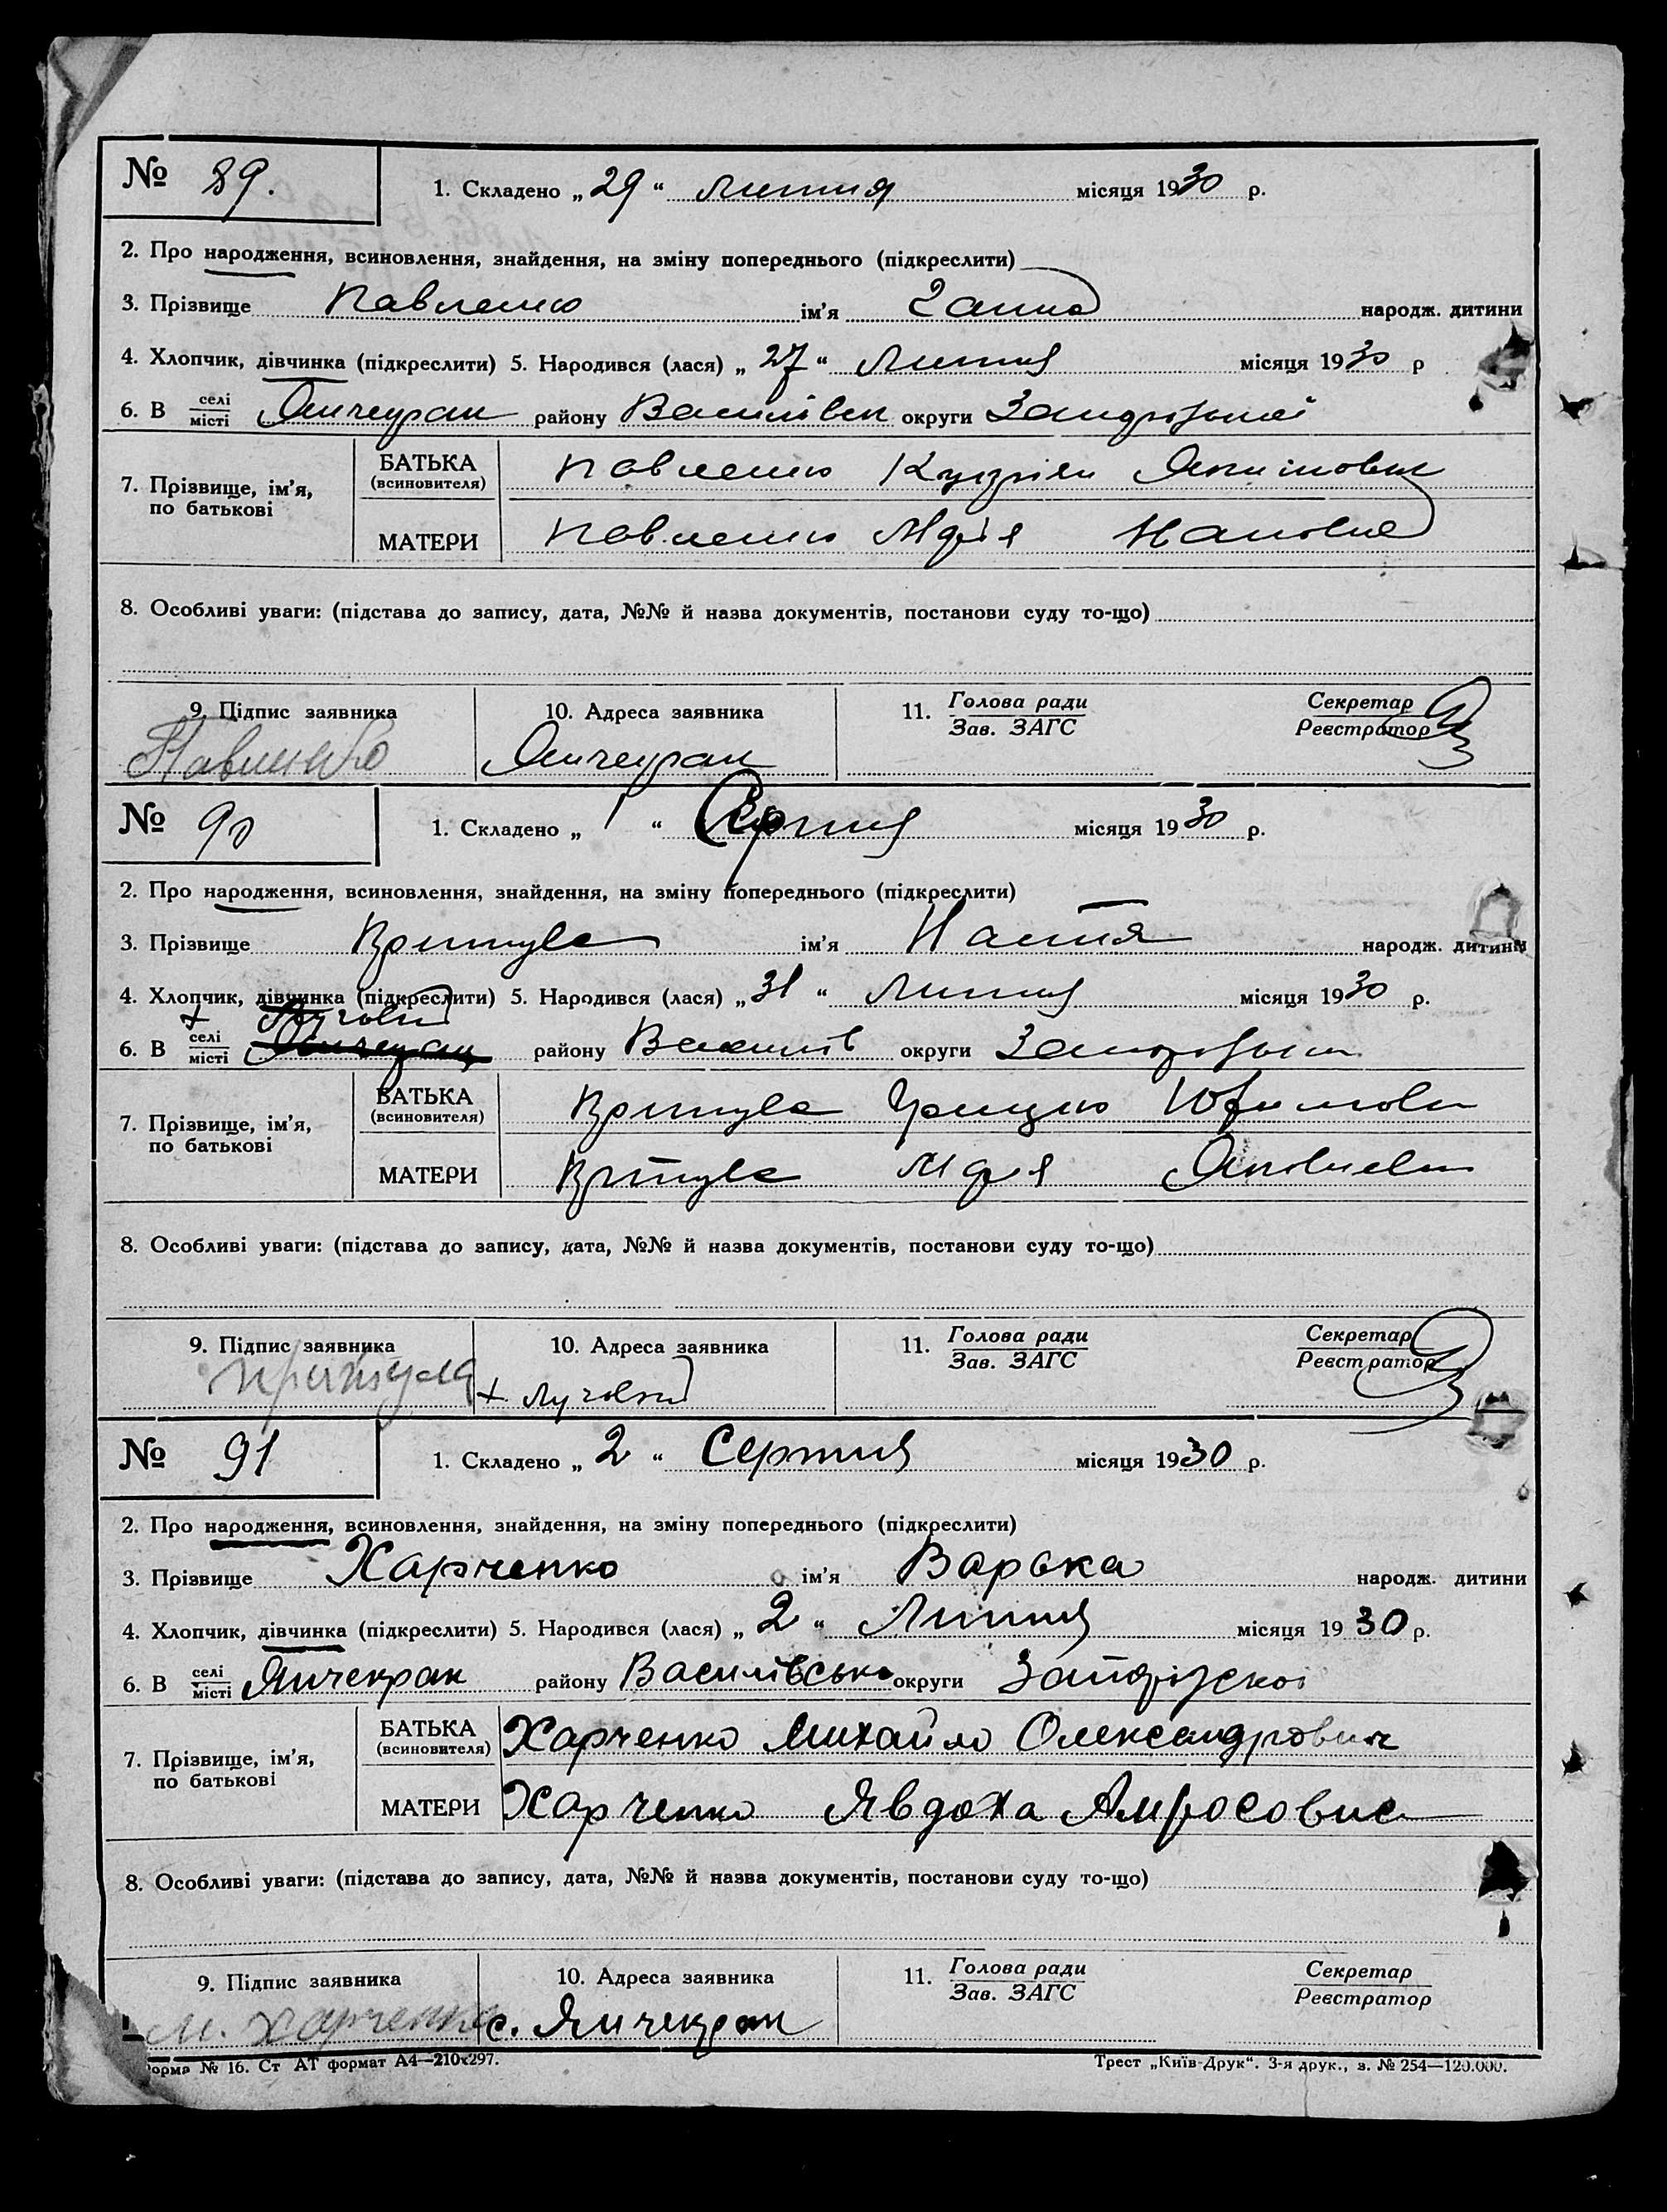 № 89. 1. Складено „29“ липня місяця 1930 р.
2. Про народження, всиновлення, знайдення, на зміну попереднього (підкреслити)
3. Прізвище Павленко ім'я Ганна народж. дитини
4. Хлопчик, дівчинка (підкреслити) 5. Народився (лася) „27“ Липня місяця 1930 р
6. В селі місті Янчекрак району Василівск округи Запоріжської
7. Прізвище, ім'я, по батькові
БАТЬКА (всиновителя) Павленко
МАТЕРИ Павленко Марія
8. Особливі уваги: (підстава до запису, дата, №№ й назва документів, постанови суду то-що)
9. Підпис заявника 10. Адреса заявника 11. Голова ради Зав. ЗАГС Секретар Реєстратор
Павленко Янчекрак
№ 90 1. Складено „1“ Серпня місяця 1930 р.
2. Про народження, всиновлення, знайдення, на зміну попереднього (підкреслити)
3. Прізвище Притула ім'я Настя народж. дитини
4. Хлопчик, дівчинка (підкреслити) 5. Народився (лася) „31“ Липня місяця 1930 р.
6. В селі місті району Василів округи
7. Прізвище, ім'я, по батькові
БАТЬКА (всиновителя) Притула Грицко Юхимови
МАТЕРИ Притула Марія
8. Особливі уваги: (підстава до запису, дата, №№ й назва документів, постанови суду то-що)
9. Підпис заявника 10. Адреса заявника 11. Голова ради Зав. ЗАГС Секретар Реєстратор
притула
№ 91 1. Складено „2“ Серпня місяця 1930 р.
2. Про народження, всиновлення, знайдення, на зміну попереднього (підкреслити)
3. Прізвище Харченко ім'я Варька народж. дитини
4. Хлопчик, дівчинка (підкреслити) 5. Народився (лася) „2“ Липня місяця 1930 р.
6. В селі місті Янчекрак району Василівсько округи Запоріжскоі
7. Прізвище, ім'я, по батькові
БАТЬКА (всиновителя) Харченко Михайло Олександрович
МАТЕРИ Харченко Явдоха Амросовна
8. Особливі уваги: (підстава до запису, дата, №№ й назва документів, постанови суду то-що)
9. Підпис заявника 10. Адреса заявника 11. Голова ради Зав. ЗАГС Секретар Реєстратор
М. Харченко с. Янчекрак
форма № 16. Ст АТ формат А4—210х297. Трест „Київ-Друк“. 3-я друк., з. № 254—120.000.